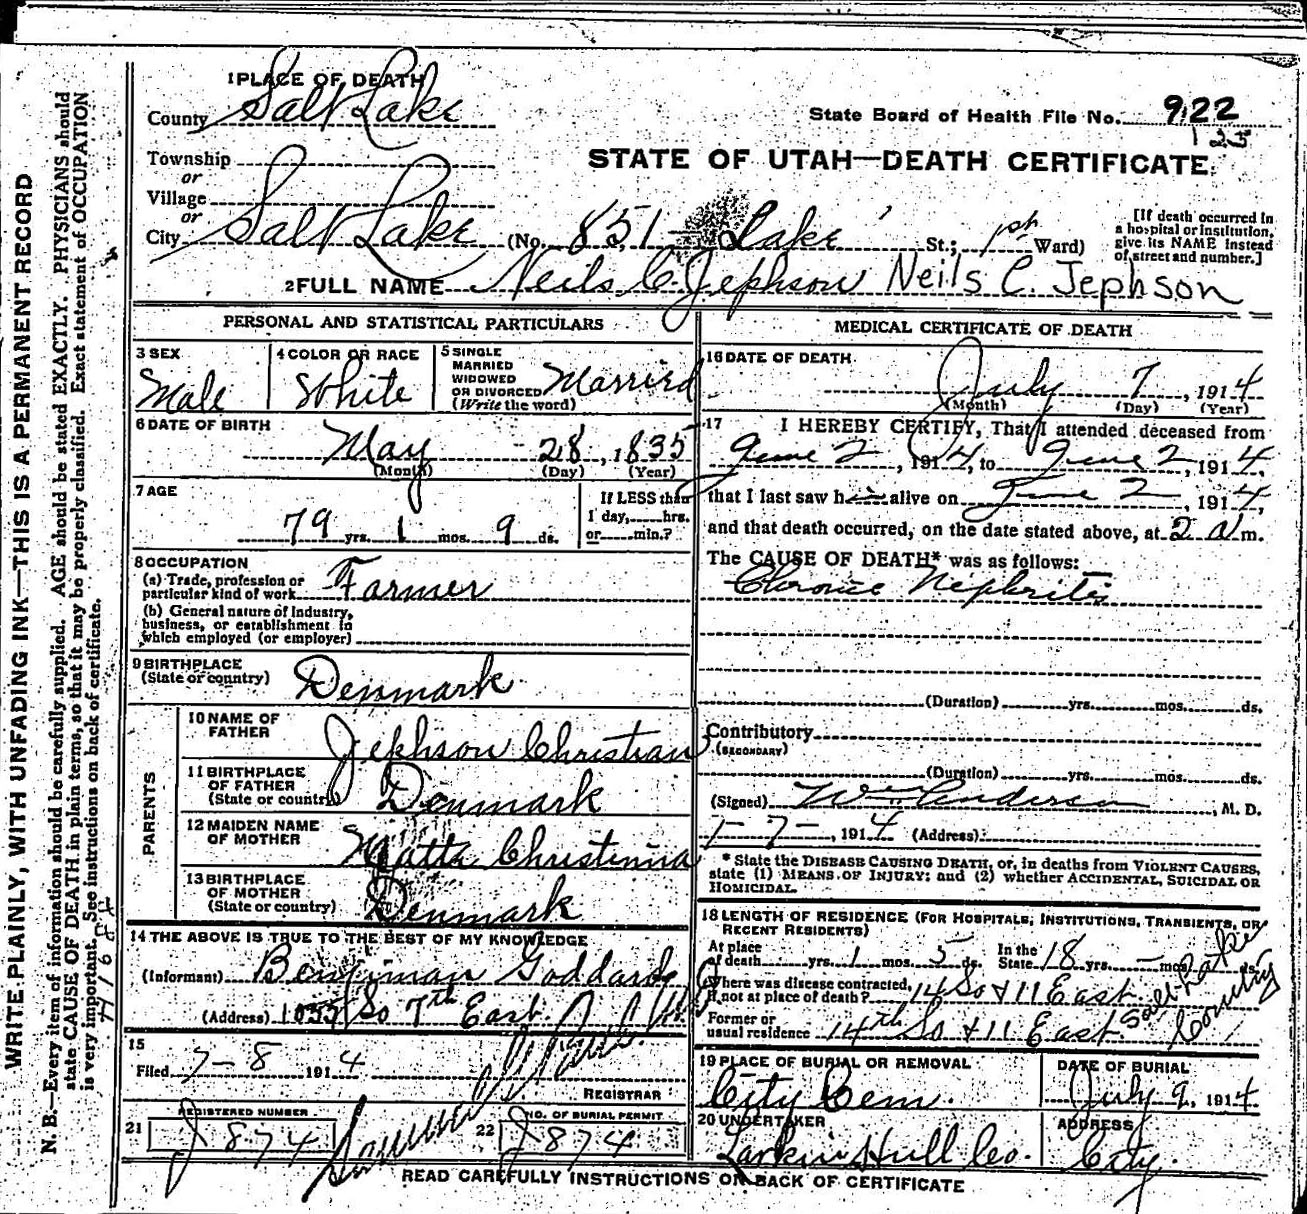 WRITE PLAINLY, WITH UNFADING INK—THIS IS A PERMANENT RECORD
N. B.—Every item of information should be carefully supplied. AGE should be stated EXACTLY. PHYSICIANS should
state CAUSE OF DEATH in plain terms, so that it may be properly classified. Exact statement of OCCUPATION
is very important. See instructions on back of certificate.
1 PLACE OF DEATH
County Salt Lake
State Board of Health File No. 922
125
Township
or
STATE OF UTAH—DEATH CERTIFICATE
Village
or
City Salt Lake (No. 851 Lake St.; 1st Ward)
[If death occurred in
a hospital or institution,
give its NAME instead
of street and number.]
2 FULL NAME Neils C. Jephson Neils C. Jephson
PERSONAL AND STATISTICAL PARTICULARS
3 SEX
Male
4 COLOR OR RACE
White
5 SINGLE
MARRIED
WIDOWED
OR DIVORCED
(Write the word)
Married
6 DATE OF BIRTH
May 28, 1835
(Month) (Day) (Year)
7 AGE
79 yrs. 1 mos. 9 ds.
If LESS than
1 day, hrs.
or min.?
8 OCCUPATION
(a) Trade, profession or
particular kind of work Farmer
(b) General nature of Industry,
business, or establishment in
which employed (or employer)
9 BIRTHPLACE
(State or country) Denmark
PARENTS
10 NAME OF
FATHER
Jephson Christian
11 BIRTHPLACE
OF FATHER
(State or country) Denmark
12 MAIDEN NAME
OF MOTHER Matta Christinna
13 BIRTHPLACE
OF MOTHER
(State or country) Denmark
14 THE ABOVE IS TRUE TO THE BEST OF MY KNOWLEDGE
(Informant) Benjiman Goddard
(Address) 1055 So 7th East
15
Filed 7-8 1914
REGISTRAR
21 REGISTERED NUMBER
J874
22 NO. OF BURIAL PERMIT
J874
MEDICAL CERTIFICATE OF DEATH
16 DATE OF DEATH
July 7, 1914
(Month) (Day) (Year)
17 I HEREBY CERTIFY, That I attended deceased from
June 2, 1914, to June 2, 1914,
that I last saw him alive on June 2, 1914,
and that death occurred, on the date stated above, at 2 a m.
The CAUSE OF DEATH* was as follows:
Chronic Nephritis
(Duration) yrs. mos. ds.
Contributory
(SECONDARY)
(Duration) yrs. mos. ds.
(Signed) Wm. Anderson, M. D.
7-7-, 1914 (Address)
* State the DISEASE CAUSING DEATH, or, in deaths from VIOLENT CAUSES,
state (1) MEANS OF INJURY; and (2) whether ACCIDENTAL, SUICIDAL OR
HOMICIDAL.
18 LENGTH OF RESIDENCE (FOR HOSPITALS, INSTITUTIONS, TRANSIENTS, OR
RECENT RESIDENTS)
At place
of death yrs. 1 mos. 5 ds.
In the
State 18 yrs. - mos. ds.
Where was disease contracted,
if not at place of death? 14 So & 11 East
Former or
usual residence 14th So & 11 East. Salt Lake County
19 PLACE OF BURIAL OR REMOVAL
City Cem.
DATE OF BURIAL
July 9, 1914
20 UNDERTAKER
Larkin Hull Co.
ADDRESS
City.
READ CAREFULLY INSTRUCTIONS ON BACK OF CERTIFICATE